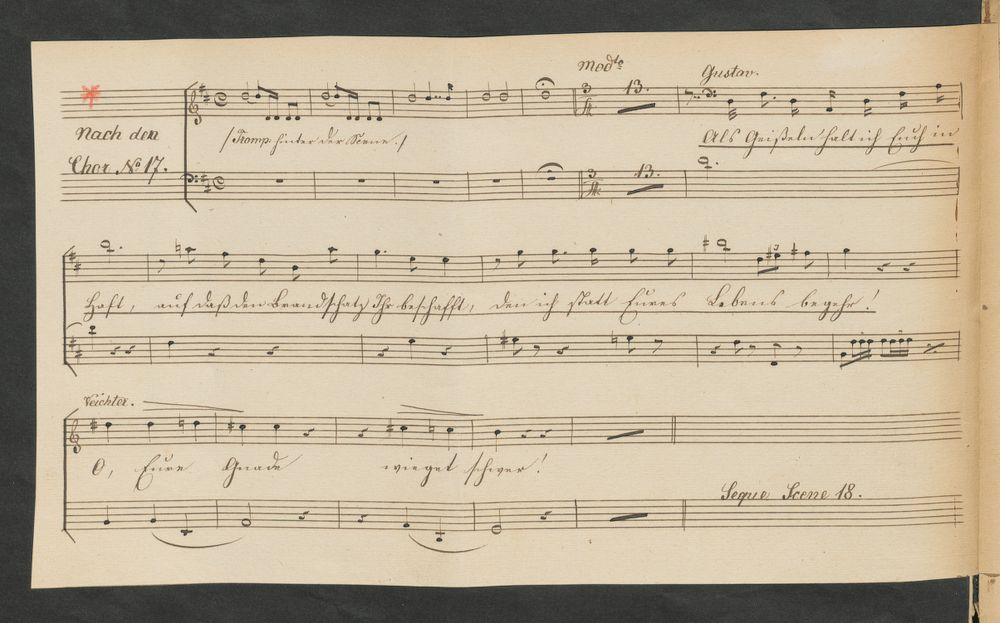 Mod.to
13.
Gustav.
Nach den
/Tromp. hinter der Scene./
Als Geißeln halt ich Euch in
Chor No 17.
13.
Haft, auf daß den Brandschatz Ihr beschafft, den ich statt Eures Lebens begehr!
O, Eure Gnade wieget schwer!
Seque Scene 18.